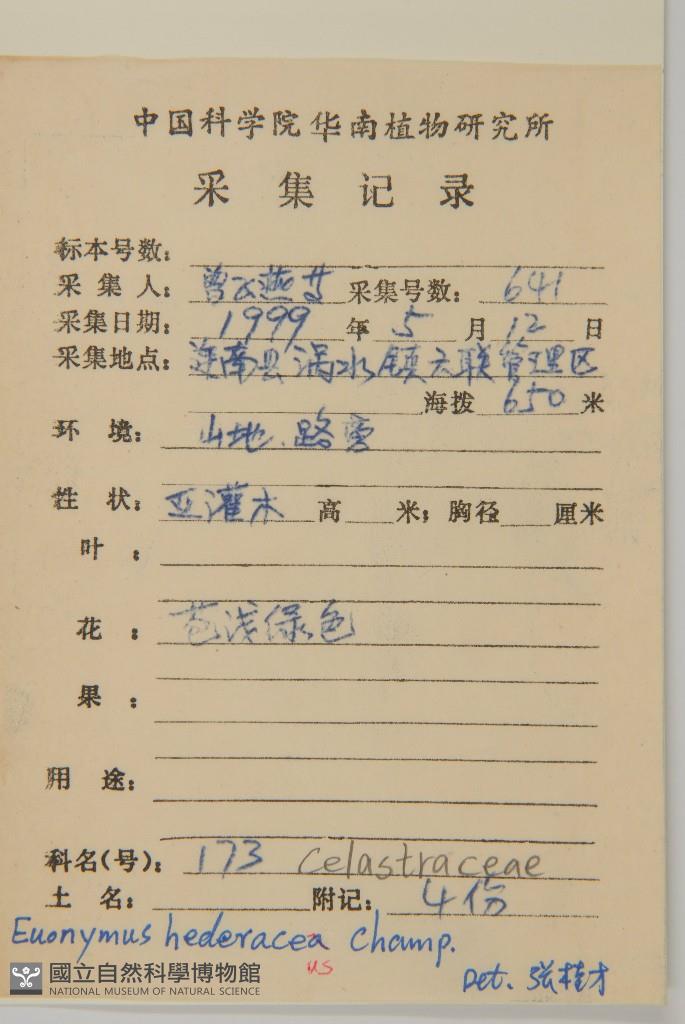 中国科学院华南植物研究所
采集记录
标本号数:
采集人: 曾飞燕等 采集号数: 641
采集日期: 1999年5月12日
采集地点: 连南县涡水镇云联管理区
海拨 650 米
环境: 山地.路旁
性状: 亚灌木 高 米; 胸径 厘米
叶:
花: 苞浅绿色
果:
用途:
科名(号): 173 Celastraceae
土名: 附记: 4份
Euonymus hederacea Champ.
us
Det. 张桂才
國立自然科學博物館
NATIONAL MUSEUM OF NATURAL SCIENCE